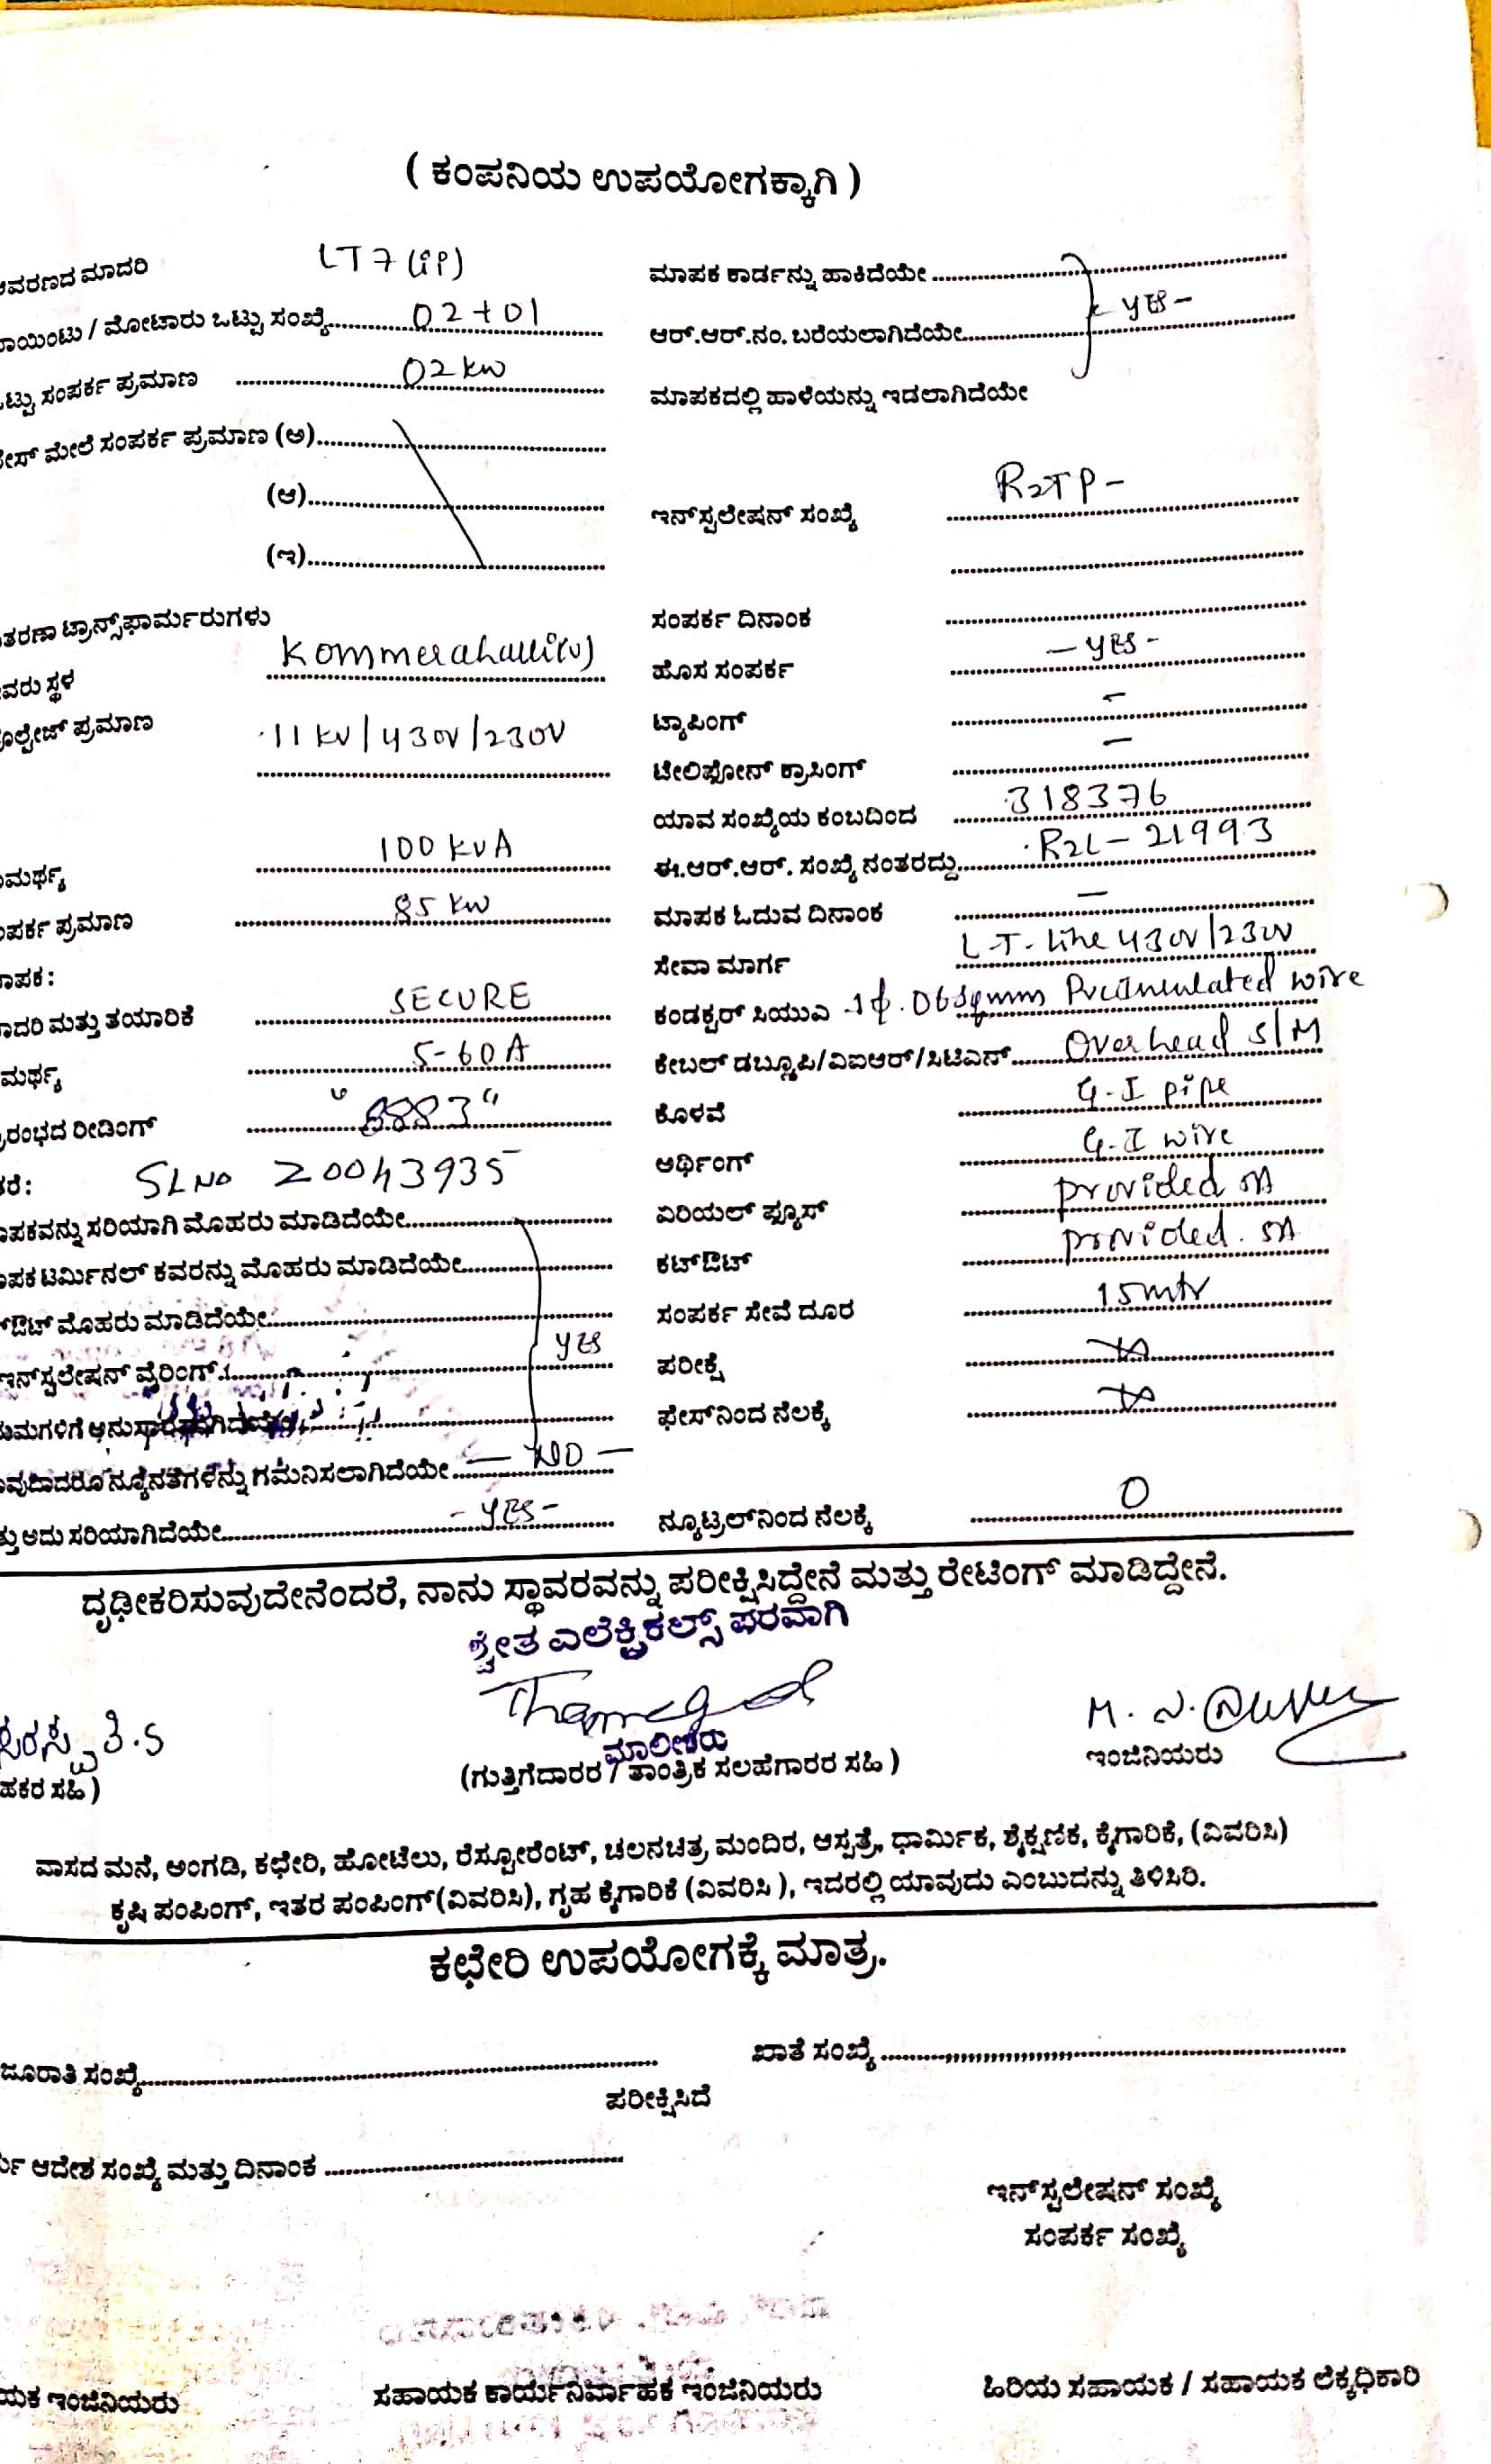 ( ಕಂಪನಿಯ ಉಪಯೋಗಕ್ಕಾಗಿ )
ಆವರಣದ ಮಾದರಿ LT7 (iP)
ಾಯಿಂಟು / ಮೋಟಾರು ಒಟ್ಟು ಸಂಖ್ಯೆ 02+01
ಒಟ್ಟು ಸಂಪರ್ಕ ಪ್ರಮಾಣ 02 kw
ೇಸ್ ಮೇಲೆ ಸಂಪರ್ಕ ಪ್ರಮಾಣ (ಅ)
(ಆ)
(ಇ)
ತರಣಾ ಟ್ರಾನ್ಸ್‌ಫಾರ್ಮರುಗಳು
ವರು ಸ್ಥಳ Kommerahalli(v)
ೋಲ್ಟೇಜ್ ಪ್ರಮಾಣ 11 KV/430V/230V
ಾಮರ್ಥ್ಯ 100 KVA
ಂಪರ್ಕ ಪ್ರಮಾಣ 85 kw
ಾಪಕ :
ಾದರಿ ಮತ್ತು ತಯಾರಿಕೆ SECURE
ಮರ್ಥ್ಯ 5-60A
ಾರಂಭದ ರೀಡಿಂಗ್
ರೆ : SLNO 20043935
ಾಪಕವನ್ನು ಸರಿಯಾಗಿ ಮೊಹರು ಮಾಡಿದೆಯೇ
ಾಪಕ ಟರ್ಮಿನಲ್ ಕವರನ್ನು ಮೊಹರು ಮಾಡಿದೆಯೇ
್‌ಔಟ್ ಮೊಹರು ಮಾಡಿದೆಯೇ
ಇನ್‌ಸ್ಟಲೇಷನ್ ವೈರಿಂಗ್ YES
ಯಮಗಳಿಗೆ ಅನುಸಾರವಾಗಿದೆಯೇ
ಾವುದಾದರೂ ನ್ಯೂನತೆಗಳನ್ನು ಗಮನಿಸಲಾಗಿದೆಯೇ — NO —
ತ್ತು ಅದು ಸರಿಯಾಗಿದೆಯೇ - YES -
ಮಾಪಕ ಕಾರ್ಡನ್ನು ಹಾಕಿದೆಯೇ
ಆರ್.ಆರ್.ನಂ. ಬರೆಯಲಾಗಿದೆಯೇ YES -
ಮಾಪಕದಲ್ಲಿ ಹಾಳೆಯನ್ನು ಇಡಲಾಗಿದೆಯೇ
ಇನ್‌ಸ್ಟಲೇಷನ್ ಸಂಖ್ಯೆ R2TP -
ಸಂಪರ್ಕ ದಿನಾಂಕ
ಹೊಸ ಸಂಪರ್ಕ — YES -
ಟ್ಯಾಪಿಂಗ್ -
ಟೇಲಿಫೋನ್ ಕ್ರಾಸಿಂಗ್ —
ಯಾವ ಸಂಖ್ಯೆಯ ಕಂಬದಿಂದ 318376
ಈ.ಆರ್.ಆರ್. ಸಂಖ್ಯೆ ನಂತರದ್ದು R2L - 21993
ಮಾಪಕ ಓದುವ ದಿನಾಂಕ —
ಸೇವಾ ಮಾರ್ಗ L-T- line 430V/230V
ಕಂಡಕ್ಟರ್ ಸಿಯುಎ 1ϕ. 06sqmm Pvc insulated wire
ಕೇಬಲ್ ಡಬ್ಲ್ಯೂಪಿ/ವಿಐಆರ್/ಸಿಟಿಎನ್ Overhead S/M
ಕೊಳವೆ G-I pipe
ಅರ್ಥಿಂಗ್ G-I wire
ಏರಿಯಲ್ ಫ್ಯೂಸ್ provided 5A
ಕಟ್‌ಔಟ್ provided. 5A
ಸಂಪರ್ಕ ಸೇವೆ ದೂರ 15mtr
ಪರೀಕ್ಷೆ
ಫೇಸ್‌ನಿಂದ ನೆಲಕ್ಕೆ
ನ್ಯೂಟ್ರಲ್‌ನಿಂದ ನೆಲಕ್ಕೆ 0
ದೃಢೀಕರಿಸುವುದೇನೆಂದರೆ, ನಾನು ಸ್ಥಾವರವನ್ನು ಪರೀಕ್ಷಿಸಿದ್ದೇನೆ ಮತ್ತು ರೇಟಿಂಗ್ ಮಾಡಿದ್ದೇನೆ.
ಶ್ವೇತ ಎಲೆಕ್ಟ್ರಿಕಲ್ಸ್ ಪರವಾಗಿ
ಮಾಲೀಕರು
ಹಕರ ಸಹಿ )
(ಗುತ್ತಿಗೆದಾರರ / ತಾಂತ್ರಿಕ ಸಲಹೆಗಾರರ ಸಹಿ )
ಇಂಜಿನಿಯರು
ವಾಸದ ಮನೆ, ಅಂಗಡಿ, ಕಛೇರಿ, ಹೋಟೆಲು, ರೆಸ್ಟೋರೆಂಟ್, ಚಲನಚಿತ್ರ ಮಂದಿರ, ಆಸ್ಪತ್ರೆ, ಧಾರ್ಮಿಕ, ಶೈಕ್ಷಣಿಕ, ಕೈಗಾರಿಕೆ, (ವಿವರಿಸಿ)
ಕೃಷಿ ಪಂಪಿಂಗ್, ಇತರ ಪಂಪಿಂಗ್(ವಿವರಿಸಿ), ಗೃಹ ಕೈಗಾರಿಕೆ (ವಿವರಿಸಿ ), ಇದರಲ್ಲಿ ಯಾವುದು ಎಂಬುದನ್ನು ತಿಳಿಸಿರಿ.
ಕಛೇರಿ ಉಪಯೋಗಕ್ಕೆ ಮಾತ್ರ.
ಜೂರಾತಿ ಸಂಖ್ಯೆ
ಖಾತೆ ಸಂಖ್ಯೆ
ಪರೀಕ್ಷಿಸಿದೆ
ರ್ಯ ಆದೇಶ ಸಂಖ್ಯೆ ಮತ್ತು ದಿನಾಂಕ
ಇನ್‌ಸ್ಟಲೇಷನ್ ಸಂಖ್ಯೆ
ಸಂಪರ್ಕ ಸಂಖ್ಯೆ
ಯಕ ಇಂಜಿನಿಯರು
ಸಹಾಯಕ ಕಾರ್ಯನಿರ್ವಾಹಕ ಇಂಜಿನಿಯರು
ಹಿರಿಯ ಸಹಾಯಕ / ಸಹಾಯಕ ಲೆಕ್ಕಧಿಕಾರಿ